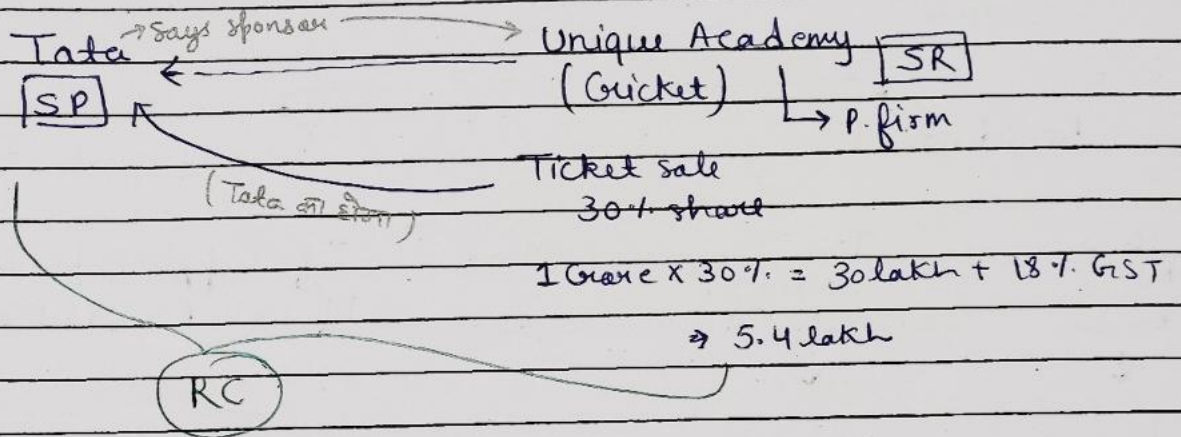 Tata → Says sponsor → Unique Academy [SR]
[SP] (Cricket) → P. firm
Ticket sale
(Tata का होगा) 30% share
1 Crore x 30% = 30 lakh + 18% GST
⇒ 5.4 lakh
RC